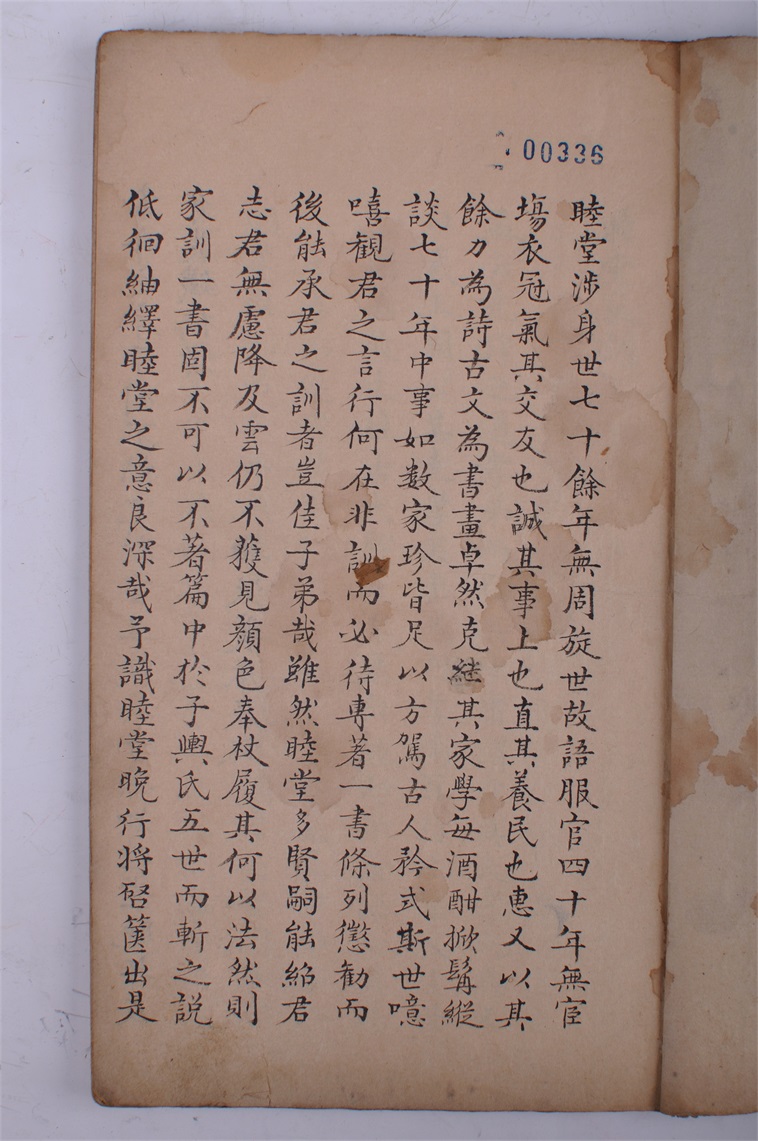 00336
睦堂涉身世七十餘年無周旋世故語服官四十年無宦
塲衣冠氣其交友也誠其事上也直其養民也惠又以其
餘力為詩古文為書畫卓然克継其家學每酒酣掀髯縱
談七十年中事如数家珍皆足以方駕古人矜式斯世噫
嘻觀君之言行何在非訓而必待專著一書條列懲勸而
後能承君之訓者豈佳子弟哉雖然睦堂多賢嗣能紹君
志君無慮降及雲仍不獲見顔色奉杖履其何以法然則
家訓一書固不可以不著篇中於子輿氏五世而斬之説
低徊紬繹睦堂之意良深哉予識睦堂晚行將啓篋出是